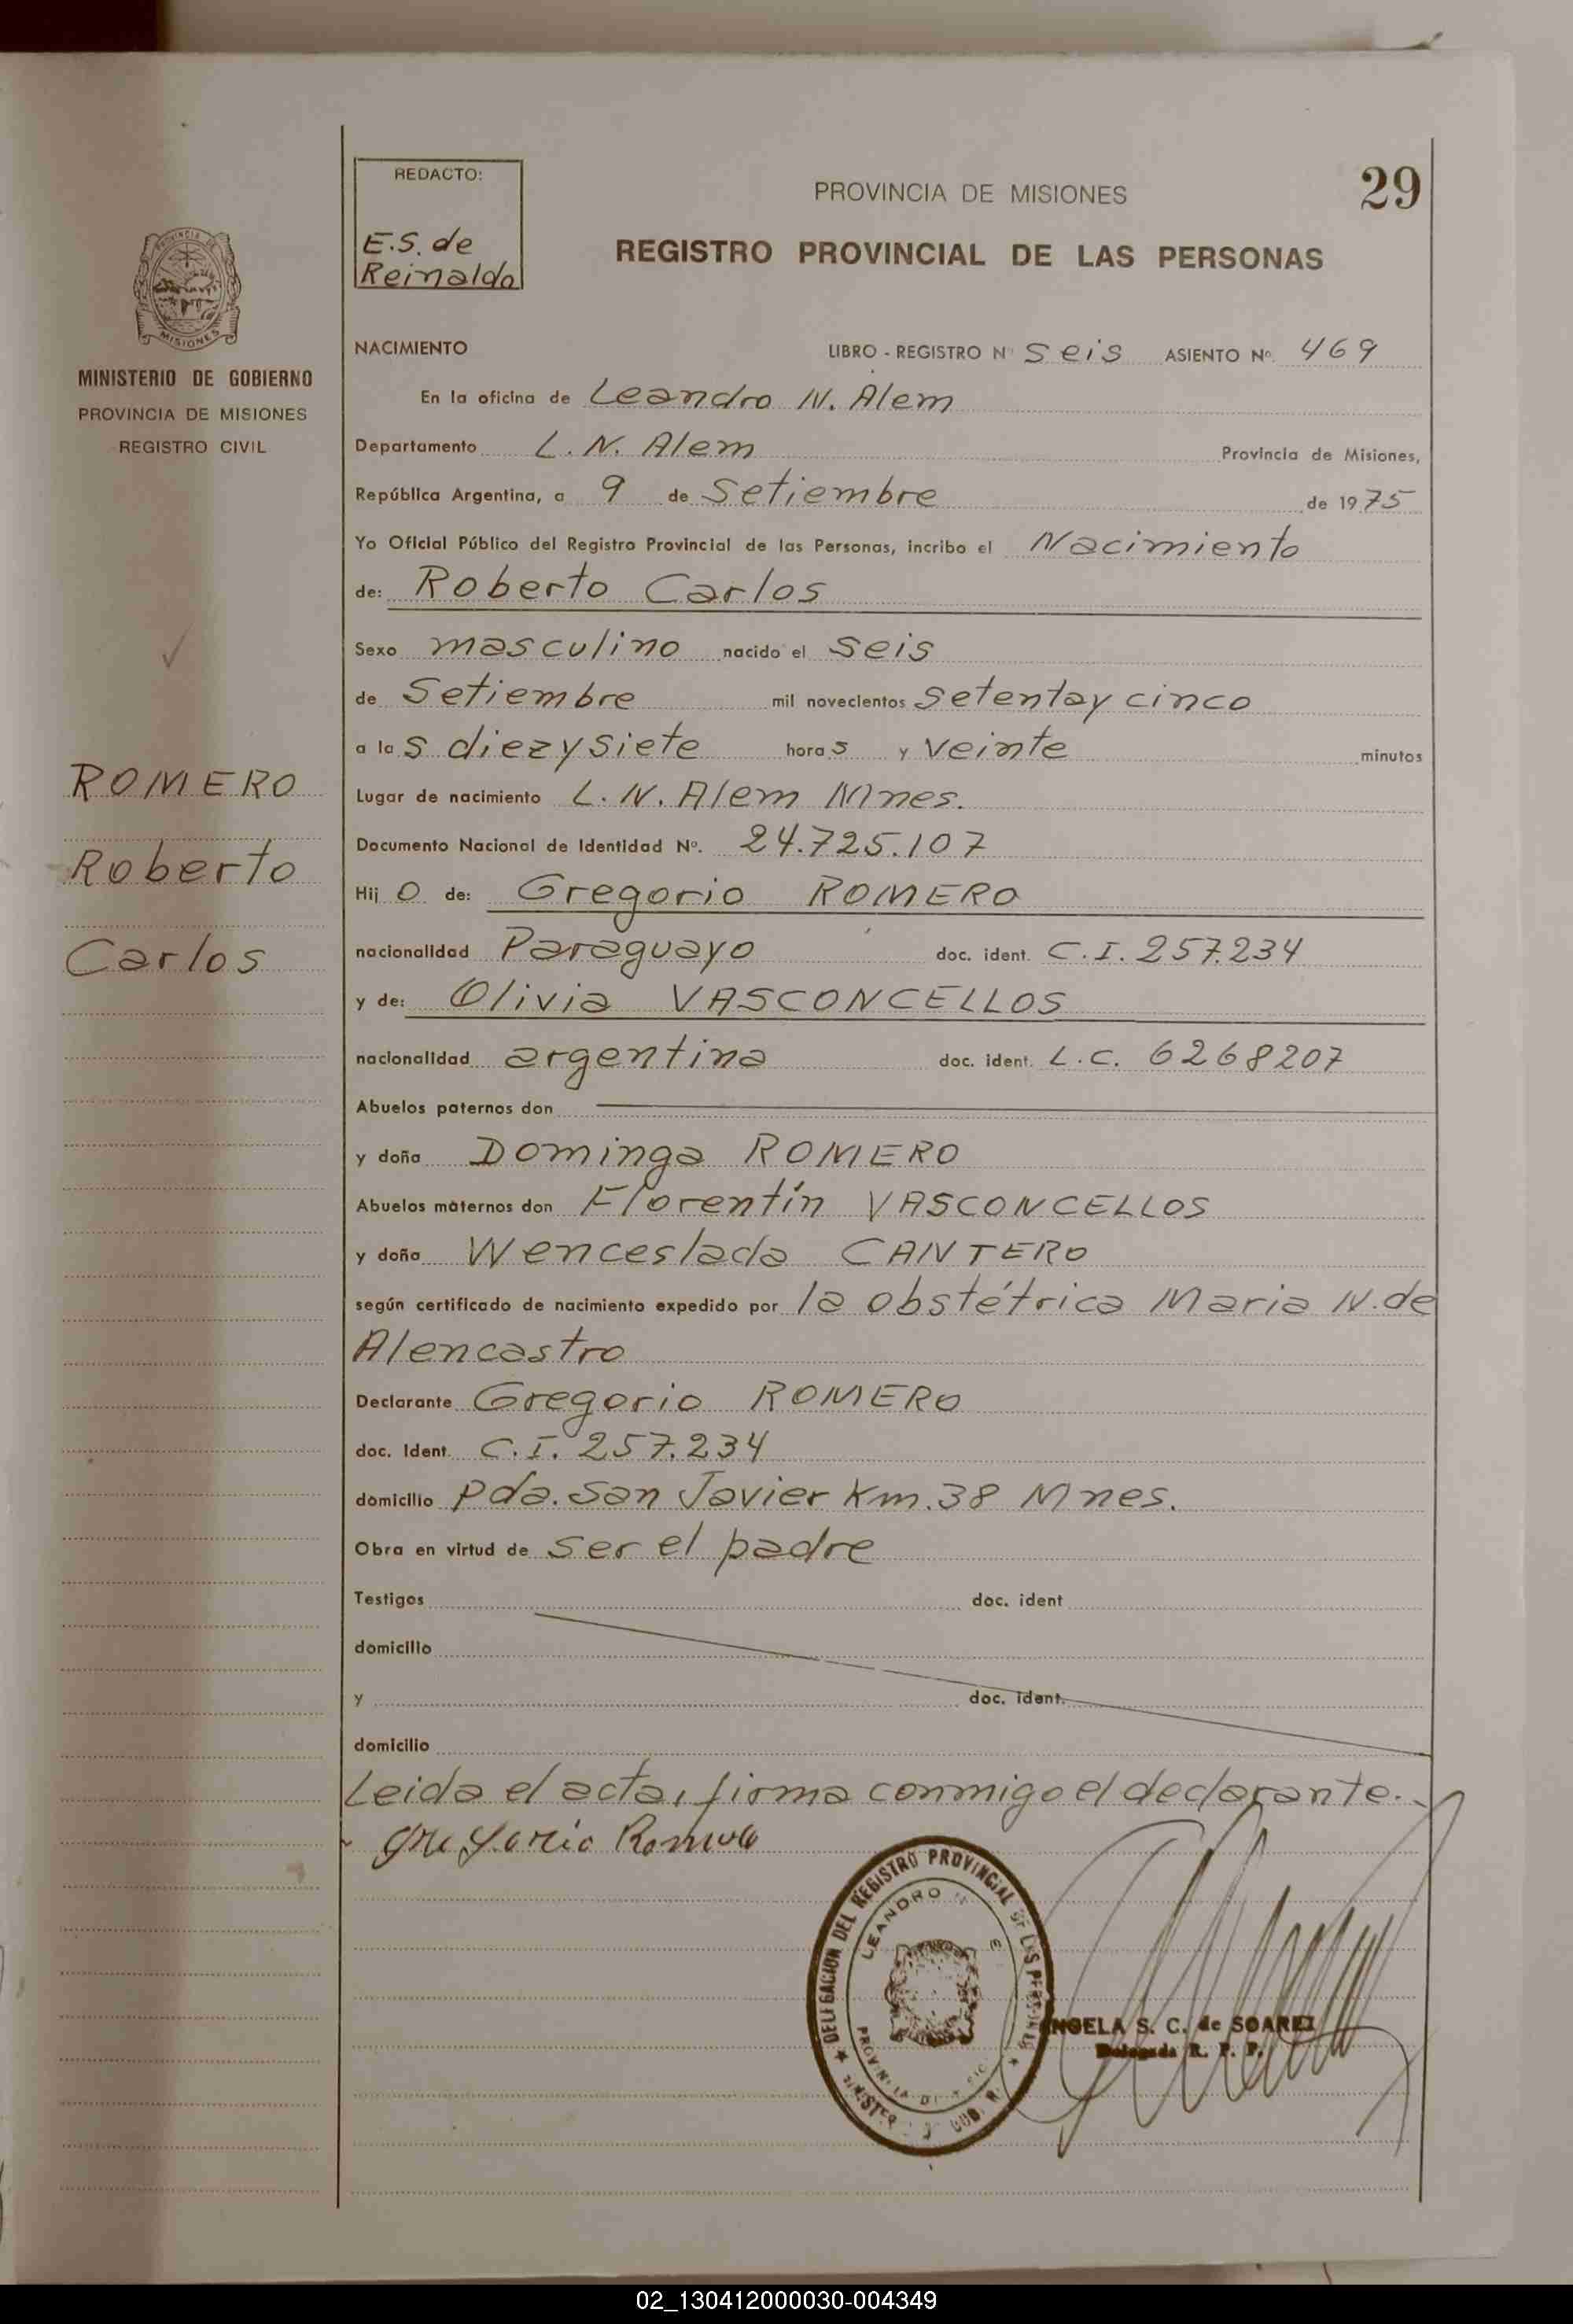 REDACTO:
E.S. de
Reinaldo
PROVINCIA DE MISIONES
29
REGISTRO PROVINCIAL DE LAS PERSONAS
MISIONES
MINISTERIO DE GOBIERNO
PROVINCIA DE MISIONES
REGISTRO CIVIL
ROMERO
Roberto
Carlos
NACIMIENTO LIBRO - REGISTRO Nº Seis ASIENTO Nº. 469
En la oficina de Leandro N. Alem
Departamento L. N. Alem Provincia de Misiones,
República Argentina, a 9 de Setiembre de 1975
Yo Oficial Público del Registro Provincial de las Personas, incribo el Nacimiento
de: Roberto Carlos
Sexo masculino nacido el Seis
de Setiembre mil novecientos Setentay cinco
a las diezysiete horas y Veinte minutos
Lugar de nacimiento L. N. Alem Mnes.
Documento Nacional de Identidad Nº. 24.725.107
Hijo de: Gregorio ROMERO
nacionalidad Paraguayo doc. ident. C.I. 257.234
y de: Olivia VASCONCELLOS
nacionalidad argentina doc. ident. L.C. 6268207
Abuelos paternos don
y doña Dominga ROMERO
Abuelos maternos don Florentín VASCONCELLOS
y doña Wenceslada CANTERO
según certificado de nacimiento expedido por la obstétrica Maria N. de
Alencastro
Declarante Gregorio ROMERO
doc. Ident. C.I. 257.234
domicilio Pda. San Javier Km. 38 Mnes.
Obra en virtud de Ser el padre
Testigos doc. ident
domicilio
y doc. ident.
domicilio
Leida el acta, firma conmigo el declarante.
Gregorio Romero
DELEGACION DEL REGISTRO PROVINCIAL DE LAS PERSONAS
LEANDRO
ANGELA S. C. de SOAREZ
Delegada R. P. P.
02_130412000030-004349